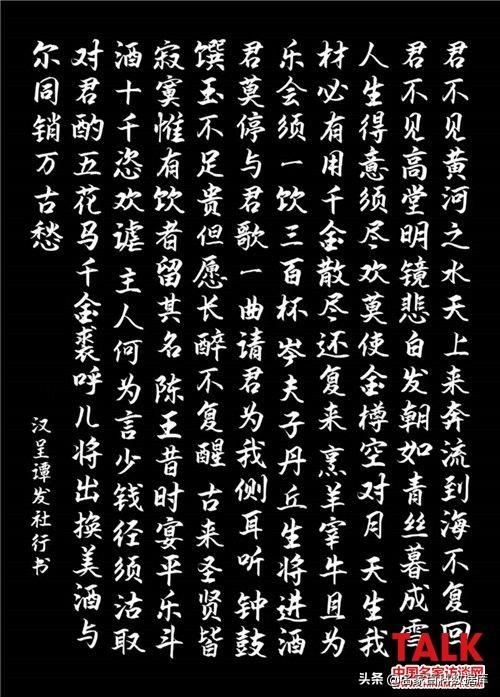 君不见黄河之水天上来奔流到海不复回
君不见高堂明镜悲白发朝如青丝暮成雪
人生得意须尽欢莫使金樽空对月 天生我
材必有用千金散尽还复来 烹羊宰牛且为
乐会须一饮三百杯 岑夫子丹丘生将进酒
君莫停与君歌一曲请君为我侧耳听 钟鼓
馔玉不足贵但愿长醉不复醒 古来圣贤皆
寂寞惟有饮者留其名 陈王昔时宴平乐斗
酒十千恣欢谑 主人何为言少钱经须沽取
对君酌五花马千金裘呼儿将出换美酒与
尔同销万古愁
汉呈谭发社行书
TALK
中国名家访谈网
头条 @名家百科数据库